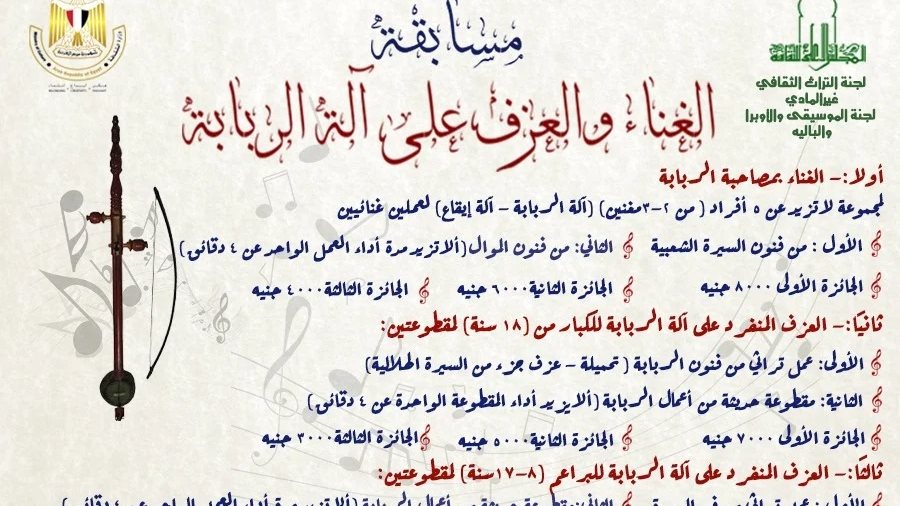 مسابقة
الغناء والعزف على آلة الربابة
لجنة التراث الثقافي
غيرالمادي
لجنة الموسيقى والاوبرا
والباليه
أولا:- الغناء بمصاحبة الربابة
لمجموعة لاتزيدعن ٥ أفراد ( من ٢-٣مغنين) (آلة الربابة - آلة إيقاع) لعملين غنائيين
الأول : من فنون السيرة الشعبية الثاني: من فنون الموال (ألاتزيدمرة أداء العمل الواحدعن ٤ دقائق )
الجائزة الأولى ٨٠٠٠ جنيه الجائزة الثانية ٦٠٠٠ جنيه الجائزة الثالثة ٤٠٠٠ جنيه
ثانيًا:- العزف المنفرد على آلة الربابة للكبار من (١٨ سنة) لمقطوعتين:
الأولى: عمل تراثي من فنون الربابة ( تحميلة - عزف جزء من السيرة الهلالية)
الثانية: مقطوعة حديثة من أعمال الربابة (ألايزيد أداء المقطوعة الواحدة عن ٤ دقائق )
الجائزة الأولى ٧٠٠٠ جنيه الجائزة الثانية ٥٠٠٠ جنيه الجائزة الثالثة ٣٠٠٠ جنيه
ثالثًا:- العزف المنفرد على آلة الربابة للبراعم (٨-١٧سنة) لمقطوعتين: